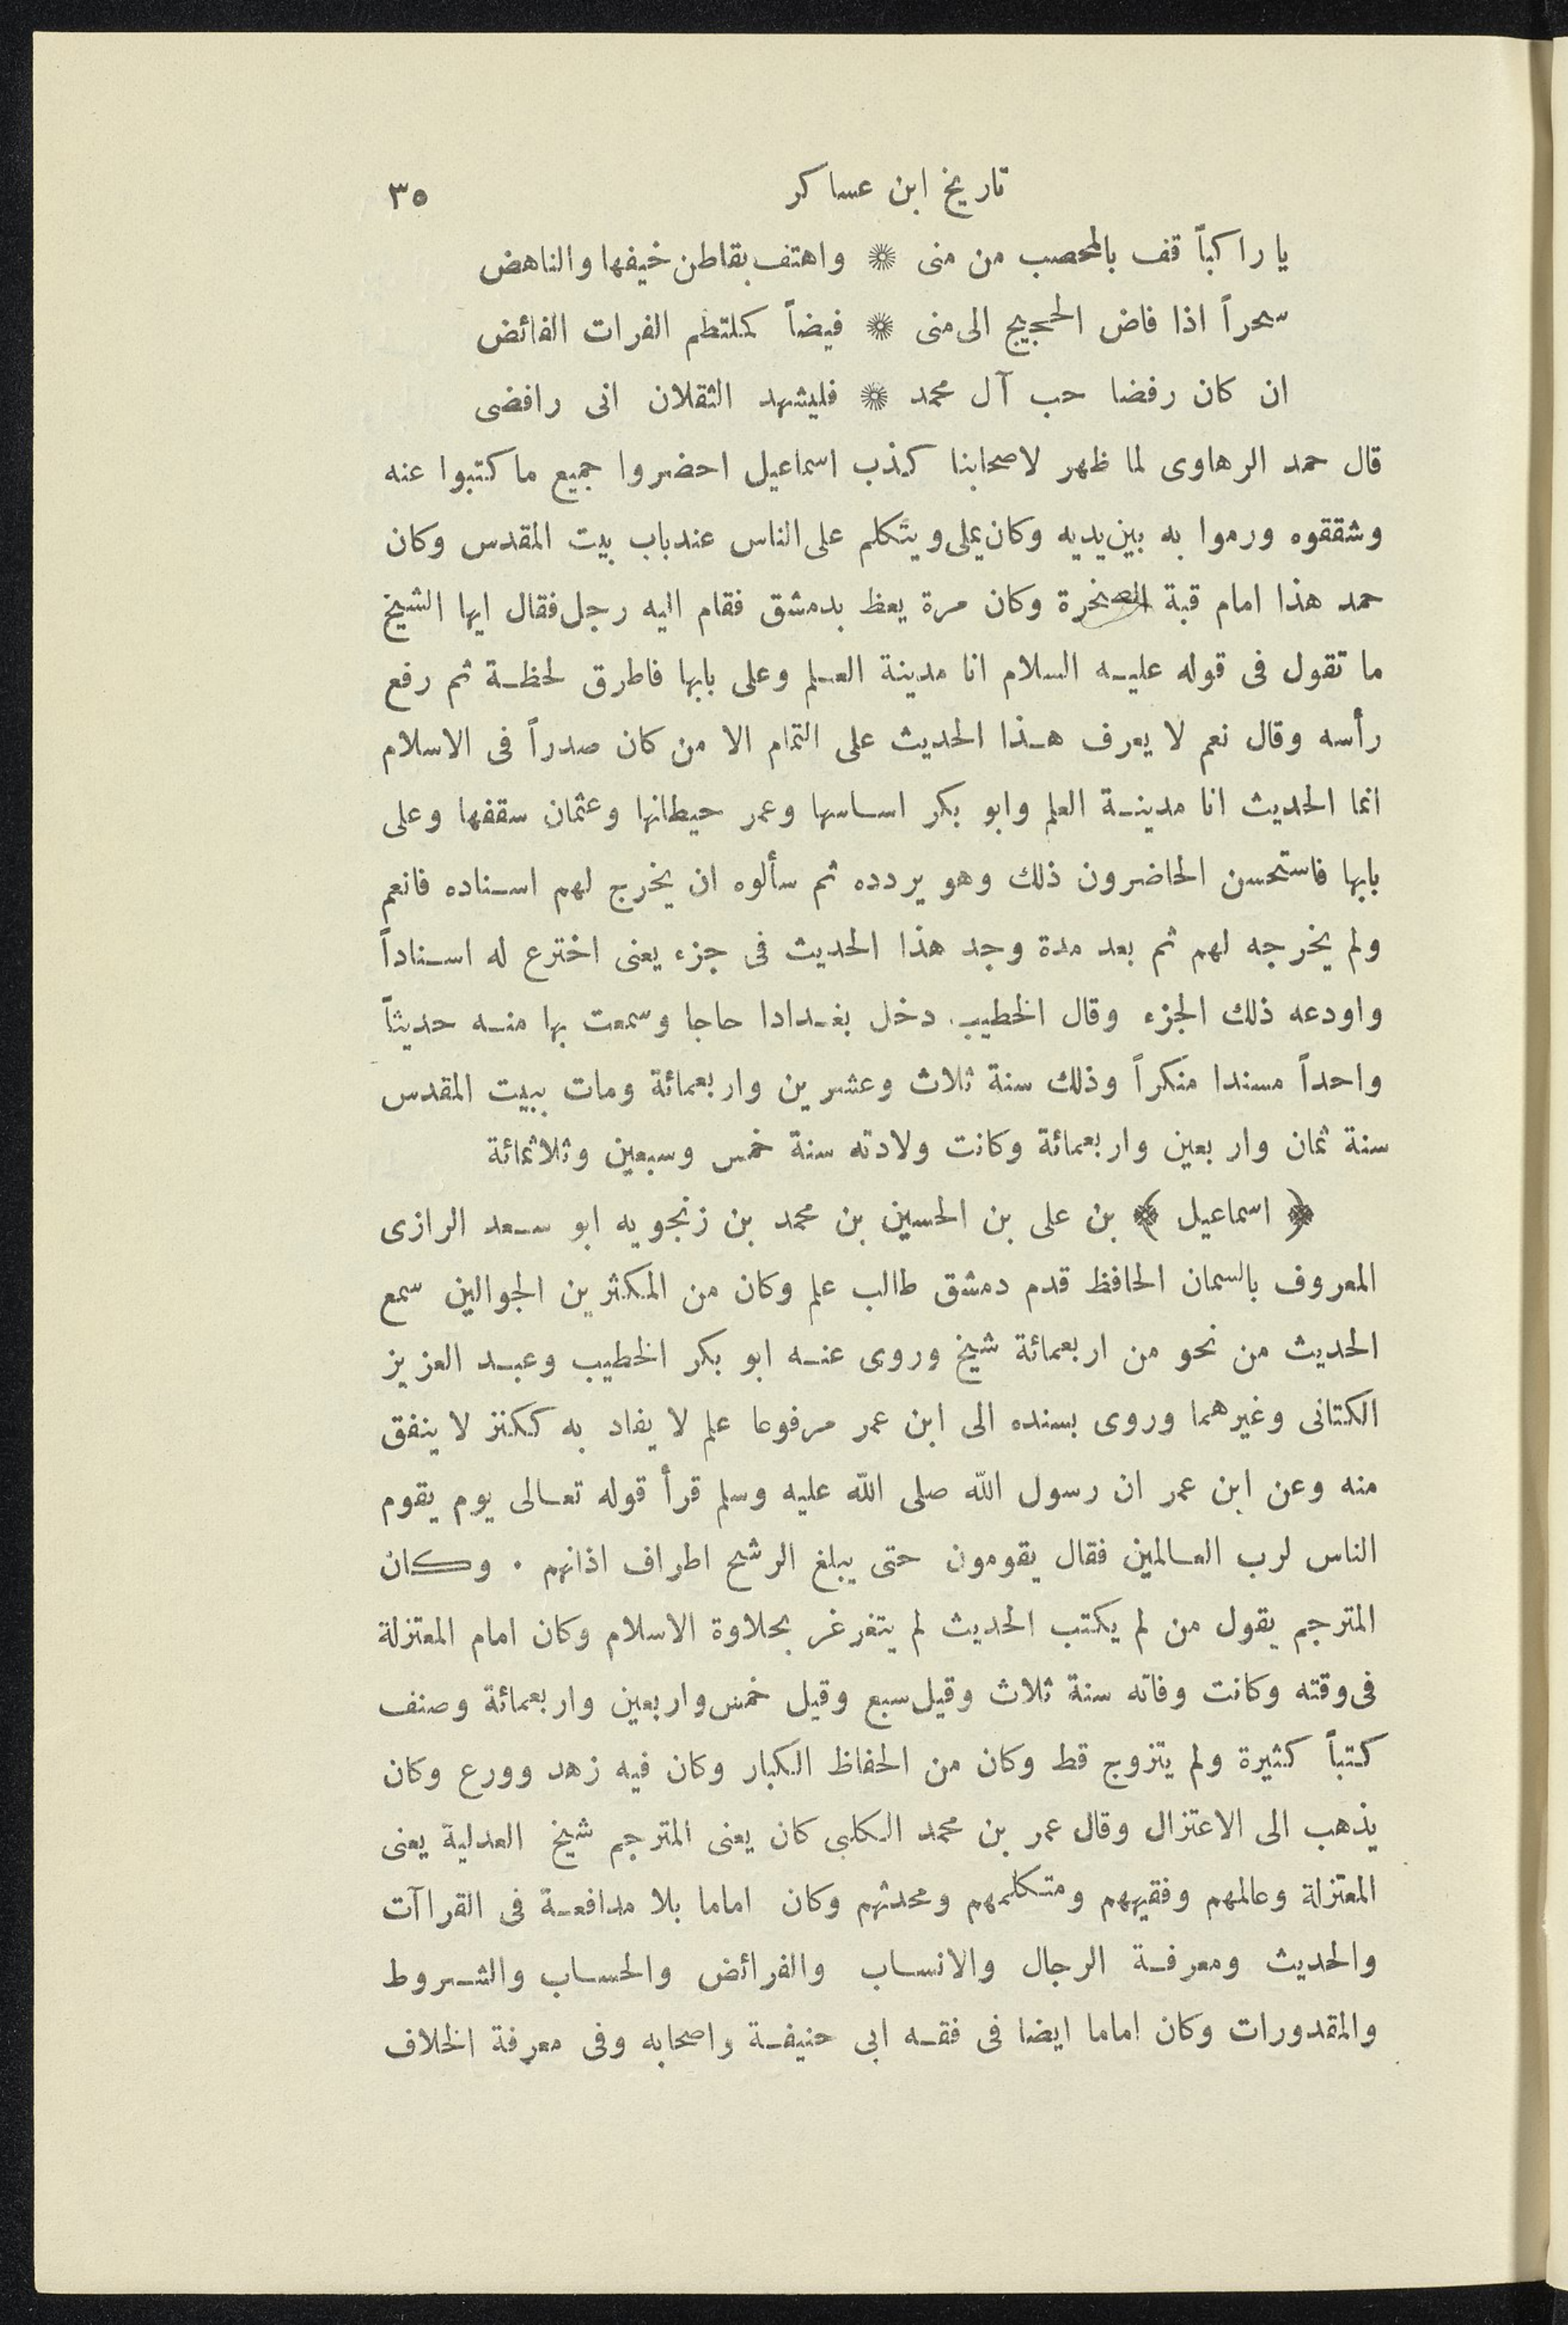 تاريخ ابن عساكر ٣٥
يا راكباً قف بالمحصب من منى ❋ واهتف بقاطن خيفها والناهض
سحراً اذا فاض الحجيج الى منى ❋ فيضاً كملتطم الفرات الفائض
ان كان رفضا حب آل محمد ❋ فليشهد الثقلان انى رافضى
قال حمد الرهاوى لما ظهر لاصحابنا كذب اسماعيل احضروا جميع ما كتبوا عنه
وشققوه ورموا به بين يديه وكان يملى ويتكلم على الناس عند باب بيت المقدس وكان
حمد هذا امام قبة الصخرة وكان مرة يعظ بدمشق فقام اليه رجل فقال ايها الشيخ
ما تقول فى قوله عليه السلام انا مدينة العلم وعلى بابها فاطرق لحظة ثم رفع
رأسه وقال نعم لا يعرف هذا الحديث على التمام الا من كان صدراً فى الاسلام
انما الحديث انا مدينة العلم وابو بكر اساسها وعمر حيطانها وعثمان سقفها وعلى
بابها فاستحسن الحاضرون ذلك وهو يردده ثم سألوه ان يخرج لهم اسناده فانعم
ولم يخرجه لهم ثم بعد مدة وجد هذا الحديث فى جزء يعنى اخترع له اسناداً
واودعه ذلك الجزء وقال الخطيب. دخل بغدادا حاجا وسمعت بها منه حديثاً
واحداً مسندا منكراً وذلك سنة ثلاث وعشرين واربعمائة ومات ببيت المقدس
سنة ثمان واربعين واربعمائة وكانت ولادته سنة خمس وسبعين وثلاثمائة
﴿ اسماعيل ﴾ بن على بن الحسين بن محمد بن زنجويه ابو سعد الرازى
المعروف بالسمان الحافظ قدم دمشق طالب علم وكان من المكثرين الجوالين سمع
الحديث من نحو من اربعمائة شيخ وروى عنه ابو بكر الخطيب وعبد العزيز
الكتانى وغيرهما وروى بسنده الى ابن عمر مرفوعا علم لا يفاد به ككنز لا ينفق
منه وعن ابن عمر ان رسول الله صلى الله عليه وسلم قرأ قوله تعالى يوم يقوم
الناس لرب العالمين فقال يقومون حتى يبلغ الرشح اطراف اذانهم . وكان
المترجم يقول من لم يكتب الحديث لم يتغرغر بحلاوة الاسلام وكان امام المعتزلة
فى وقته وكانت وفاته سنة ثلاث وقيل سبع وقيل خمس واربعين واربعمائة وصنف
كتباً كثيرة ولم يتزوج قط وكان من الحفاظ الكبار وكان فيه زهد وورع وكان
يذهب الى الاعتزال وقال عمر بن محمد الكلبى كان يعنى المترجم شيخ العدلية يعنى
المعتزلة وعالمهم وفقيههم ومتكلمهم ومحدثهم وكان اماما بلا مدافعة فى القراآت
والحديث ومعرفة الرجال والانساب والفرائض والحساب والشروط
والمقدورات وكان اماما ايضا فى فقه ابى حنيفة واصحابه وفى معرفة الخلاف